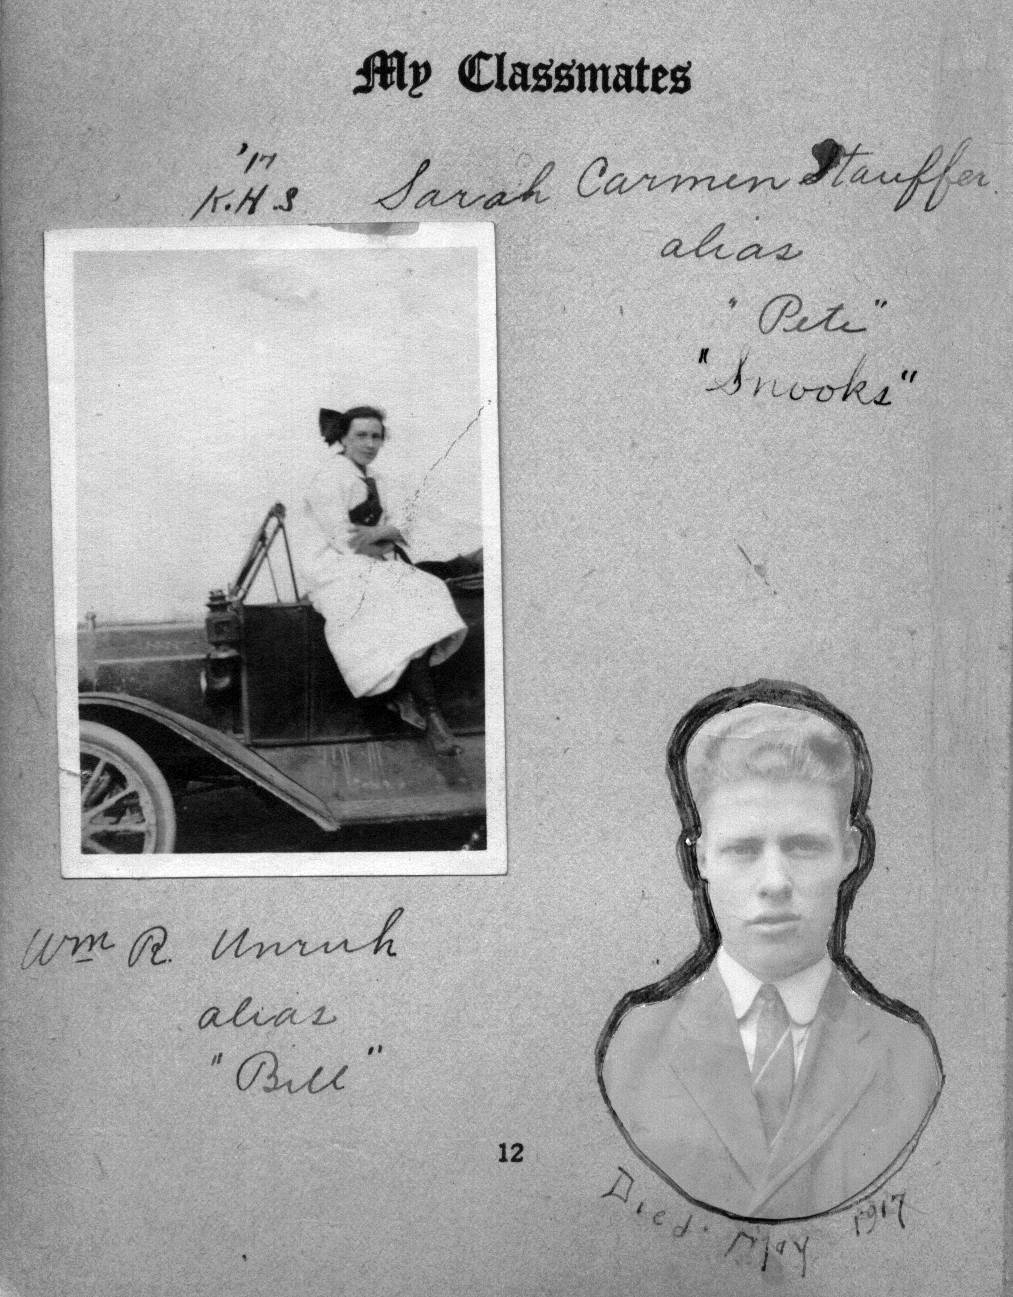 My Classmates
'17
K.H.S. Sarah Carmen Stauffer.
alias
"Pete"
"Snooks"
Wm R. Unruh
alias
"Bill"
12
Died. May 1917